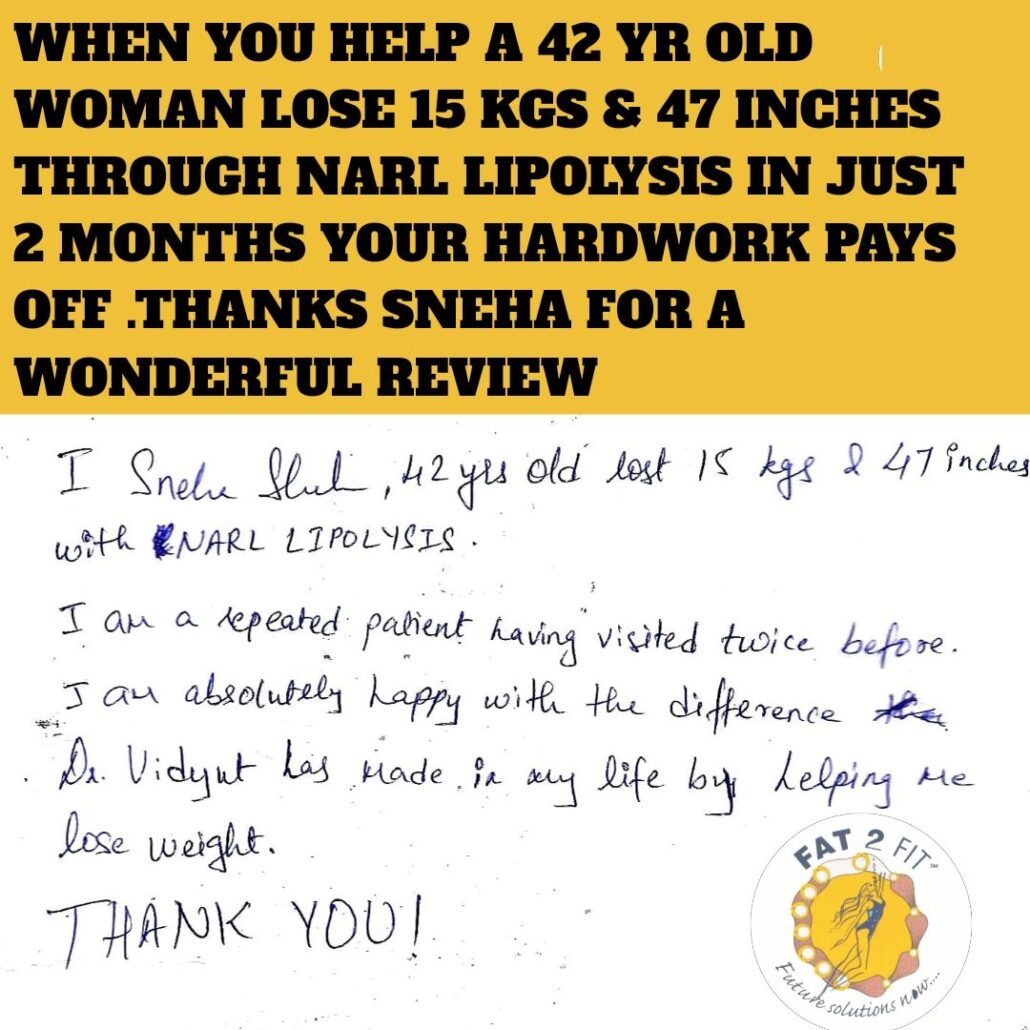 WHEN YOU HELP A 42 YR OLD
WOMAN LOSE 15 KGS & 47 INCHES
THROUGH NARL LIPOLYSIS IN JUST
2 MONTHS YOUR HARDWORK PAYS
OFF .THANKS SNEHA FOR A
WONDERFUL REVIEW
I Sneha , 42 yrs old lost 15 kgs & 47 inches
with NARL LIPOLYSIS.
I am a repeated patient having visited twice before.
I am absolutely happy with the difference
Dr. Vidyut has made in my life by helping me
lose weight.
THANK YOU!
FAT 2 FIT
Future solutions now....